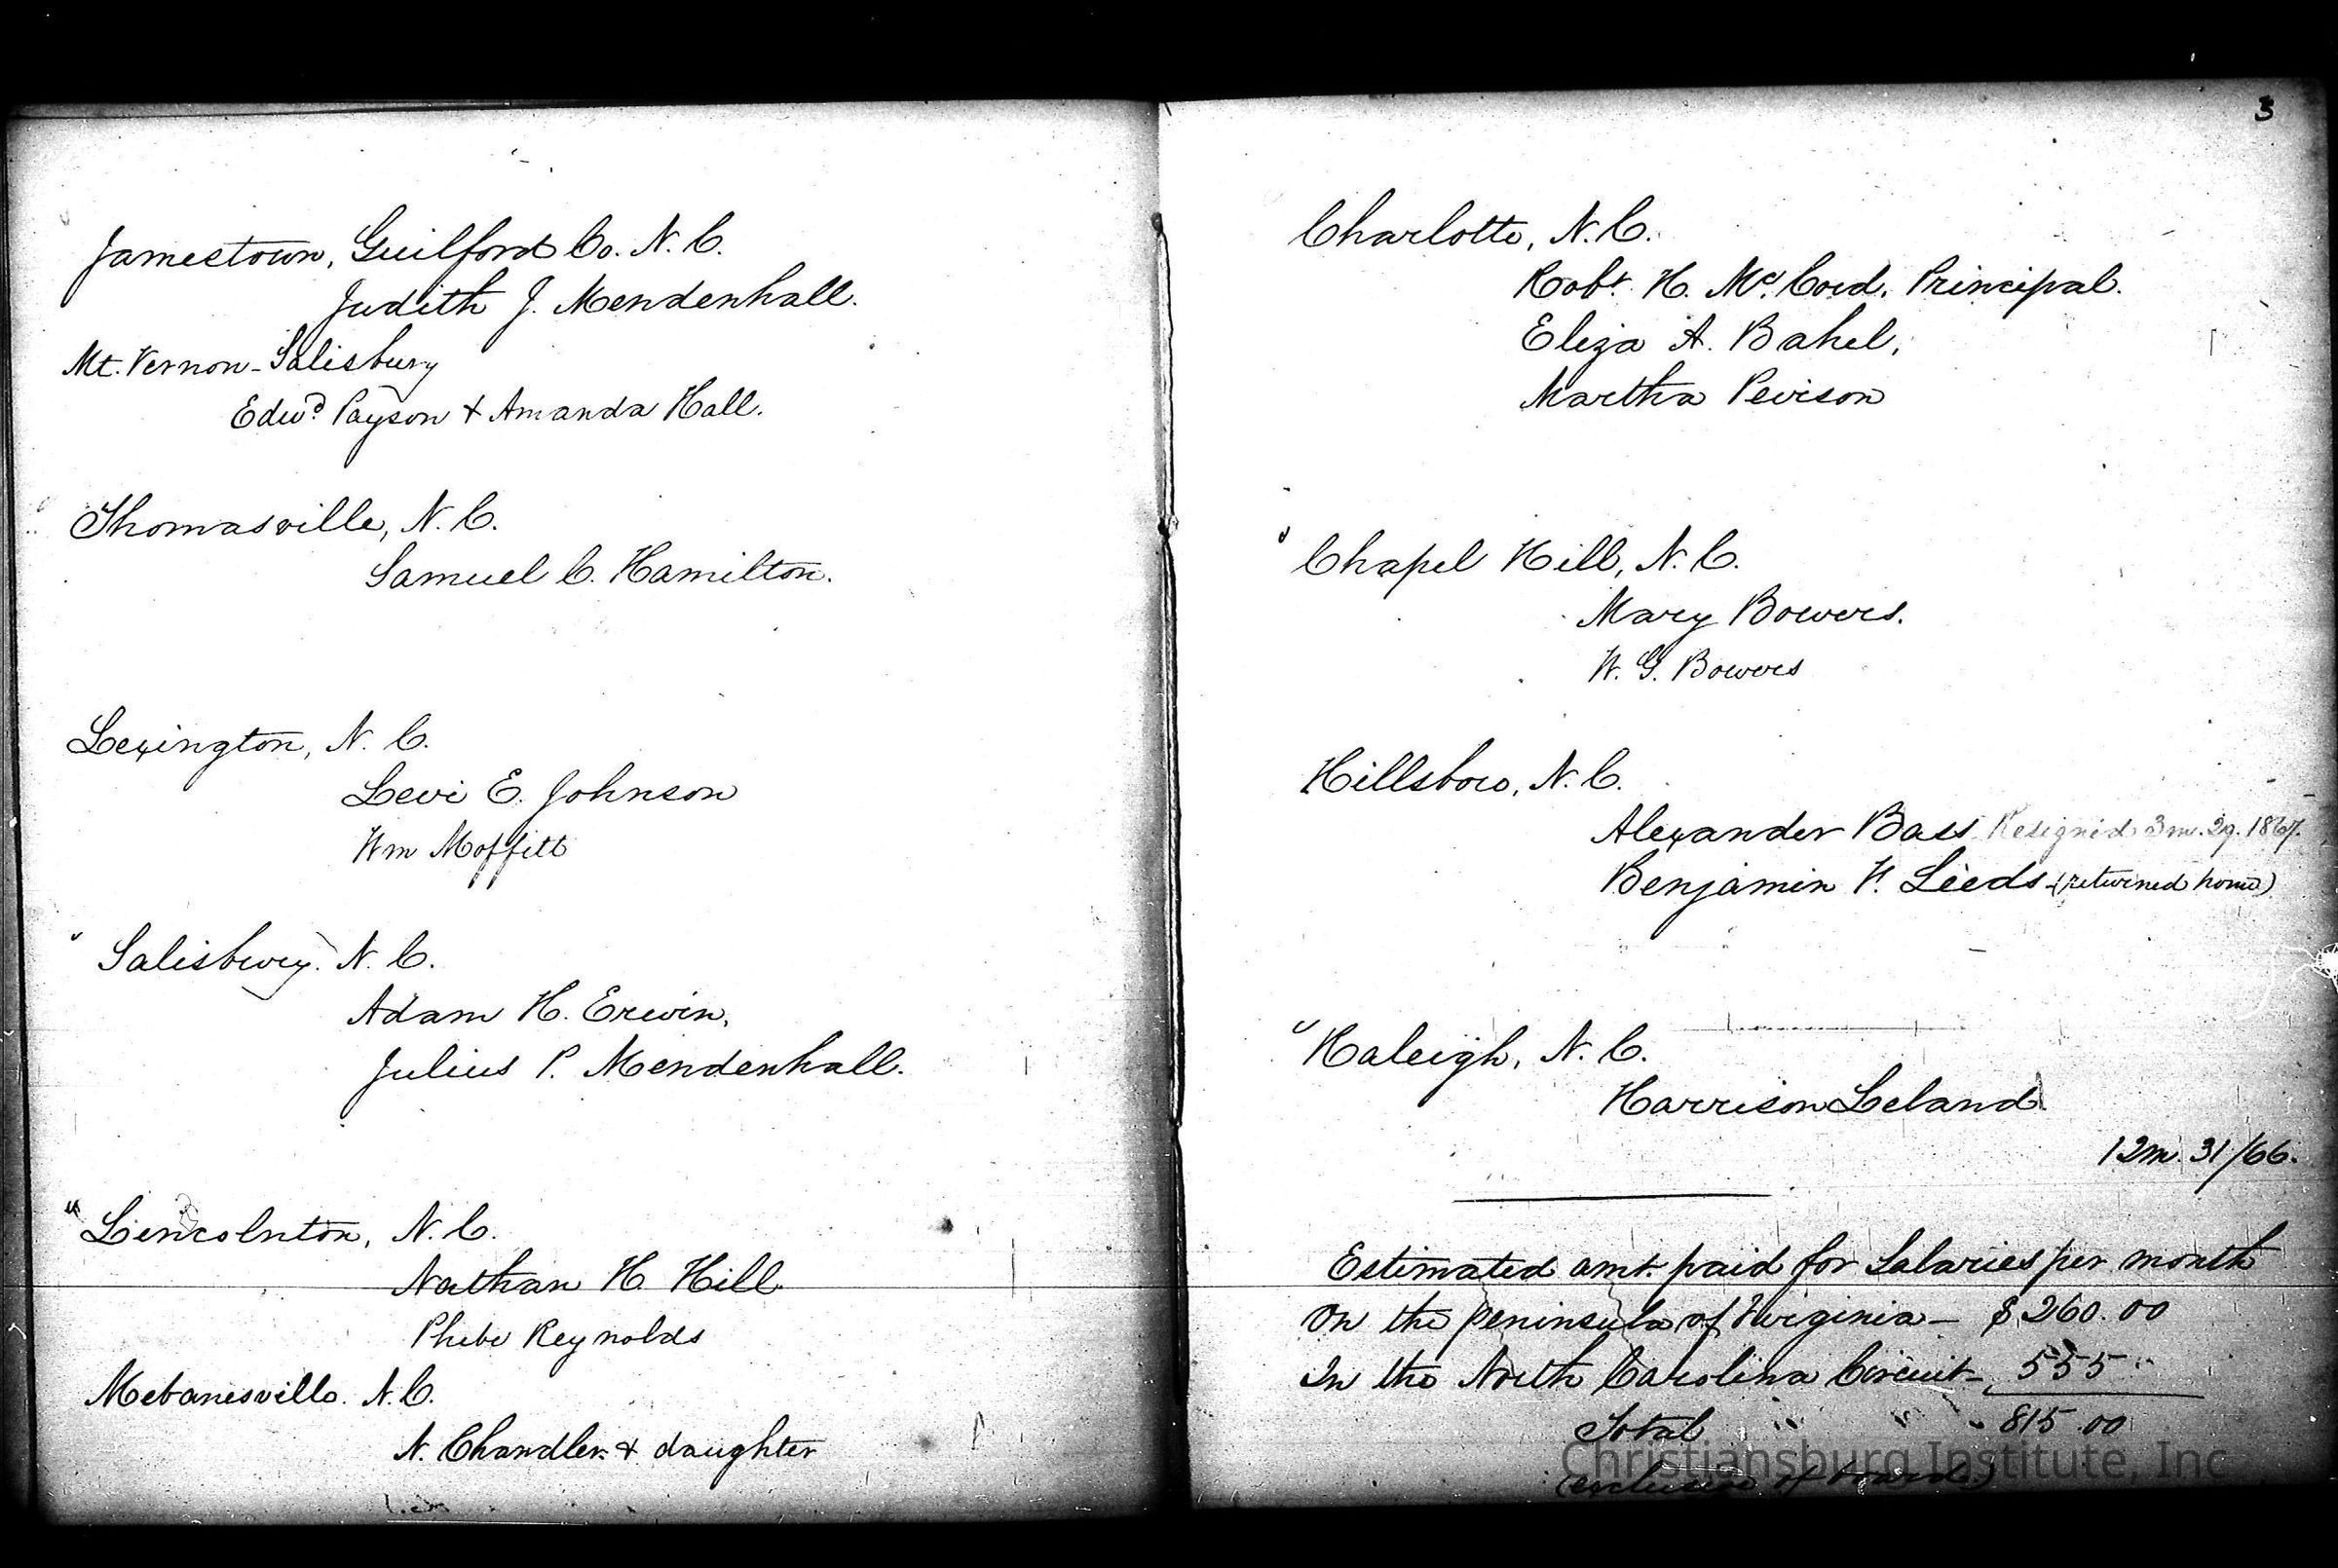 Jamestown, Guilford Co. N. C.
Judith J. Mendenhall.
Mt. Vernon - Salisbury
Edwd Payson + Amanda Hall.
Thomasville, N. C.
Samuel C. Hamilton.
Lexington, N. C.
Levi E. Johnson
Wm Moffitt
" Salisbury. N. C.
Adam H. Erwin,
Julius P. Mendenhall.
" Lincolnton, N. C.
Nathan H Hill
Phebe Reynolds
Mebanesville. N. C.
N. Chandler + daughter
3
Charlotte, N. C.
Robt. H. Mc.Cord, Principal.
Eliza A. Bahel,
Martha Peirson
" Chapel Hill, N. C.
Mary Bowers.
W. G. Bowers
Hillsboro, N. C.
Alexander Bass Resigned 3m. 29. 1867.
Benjamin F. Leeds - (returned home)
" Raleigh, N. C.
Harrison Leland
12m. 31/66.
Estimated amt. paid for Salaries per month
On the peninsula of Virginia - $ 260.00
In the North Carolina Circuit - 555 "
Total " " " 815.00
(exclusive of board.)
Christiansburg Institute, Inc